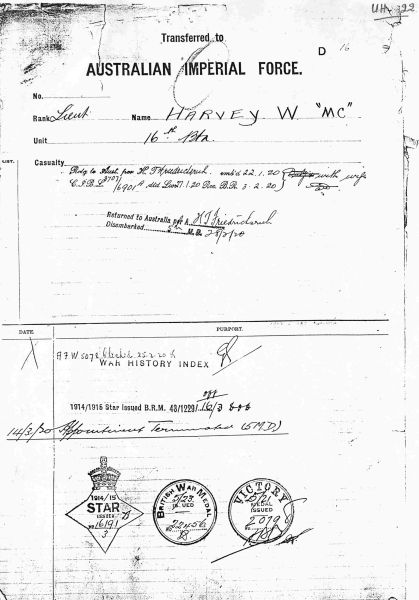 Transferred to
D 16
AUSTRALIAN IMPERIAL FORCE.
No.
Rank Lieut Name HARVEY. W. "MC"
Unit 16th Btn.
LIST. Casualty
Retg to Aust. per H.T. Friederich embd 22.1.20 with wife
C.I.B.L. 3707/6901 dtd Lon 27.1.20 Rec. B.R. 3.2.20
Returned to Australia per H T Friedricksruh
Disembarked 5th M.D. 28/2/20
DATE. PURPORT.
A.F.W 5078 Check'd 25.2.20
WAR HISTORY INDEX
1914/1915 Star Issued B.R.M. 48/1229/
14/3/20 Appointment Terminated (5 M.D.)
1914/15
STAR
ISSUED
No 16191
3
BRITISH WAR MEDAL
5/23
ISSUED
22456
VICTORY
MEDAL
ISSUED